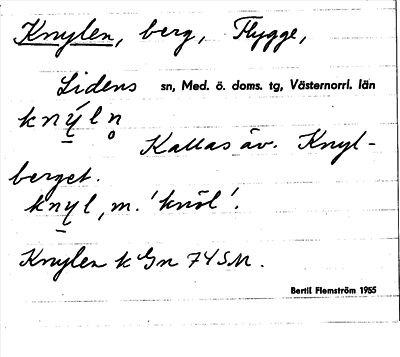 Knylen, berg, Flygge,
Lidens sn, Med. ö. doms. tg, Västernorrl. län
kný̱ln̥
Kallas äv. Knyl-
berget.
kny̱l, m. 'knöl'.
Knylen k Gn 74SM.
Bertil Flemström 1955